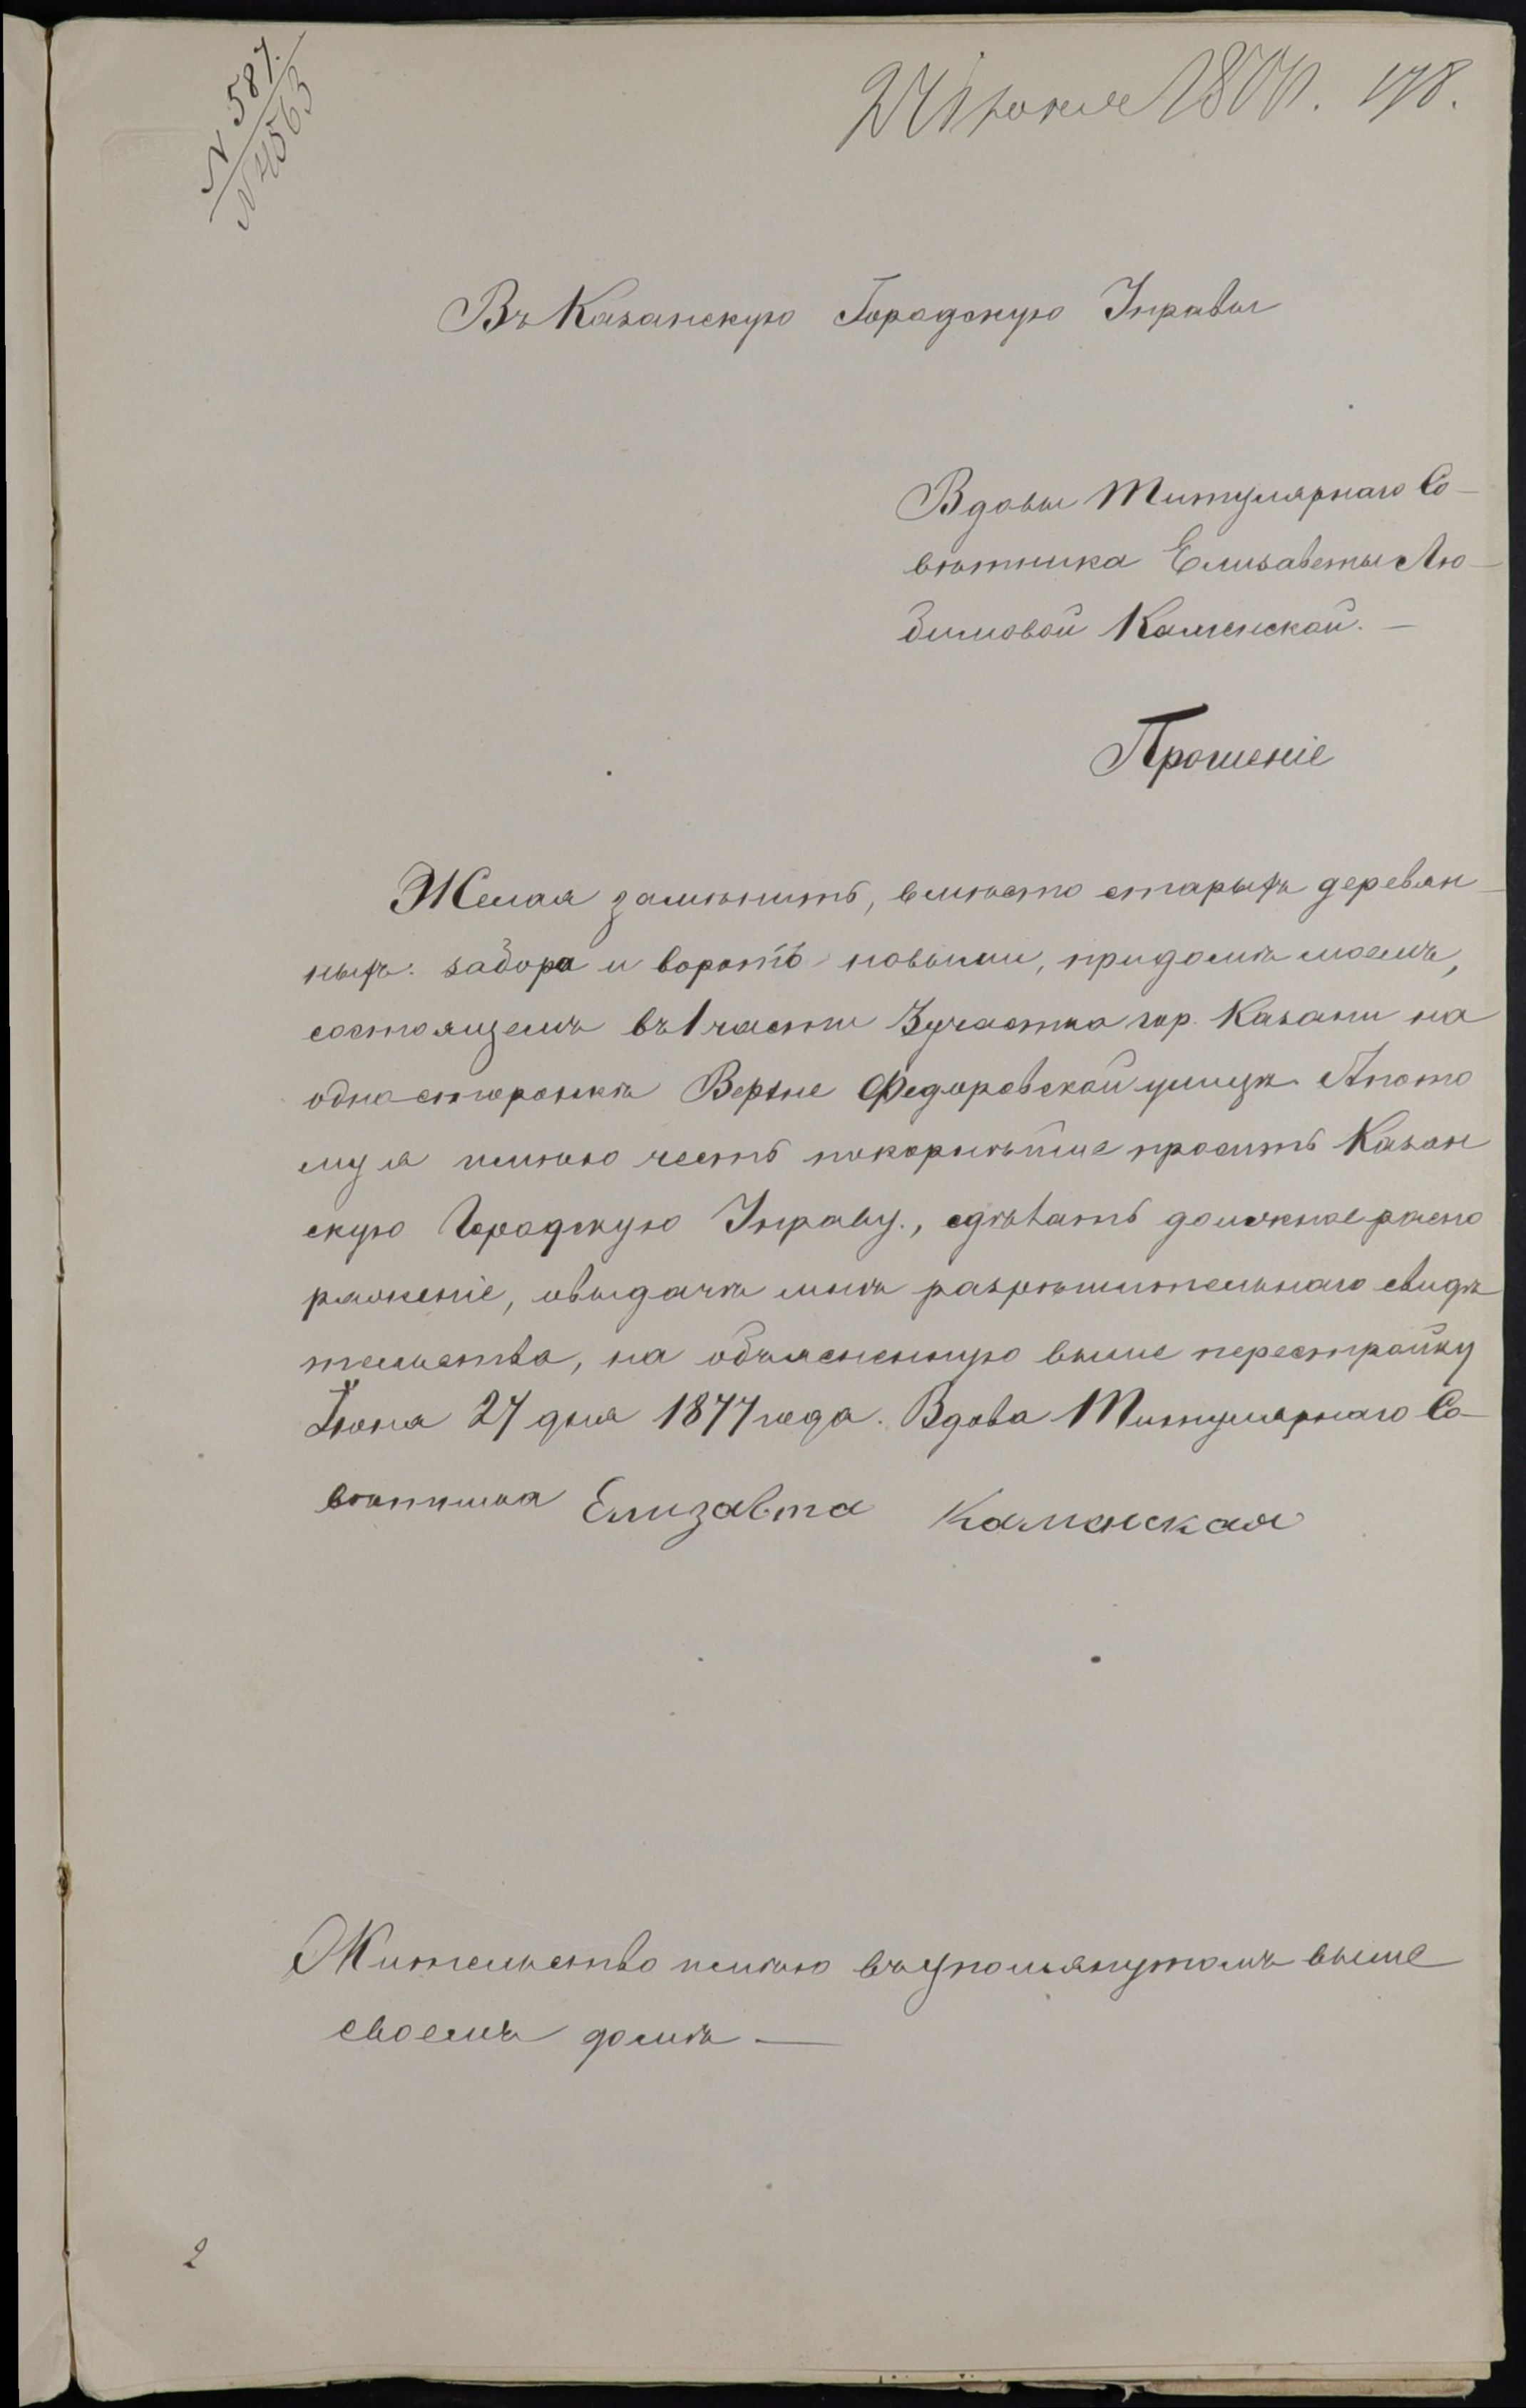 N 587.
N 4563
27 Іюня 1877. 178.
Въ Казанскую Городскую Управы
Вдовы Титулярнаго Со-
вѣтника Елизаветы Лю-
бимовой Каменской. —
Прошеніе
Желая замѣнить, вмѣсто старыхъ деревян-
ныхъ: забора и воротъ новыми, придомѣ моемъ,
состоящемъ въ 1 части 3 участка гор. Казани на
одно сторонкѣ Верхне Федоровской улицѣ. Апото
му я имѣю честь покорнѣйше просить Казан
скую Городскую Управу., сдѣлать должное распо
ряженіе, овыдачѣ мнѣ разрѣшительнаго свидѣ
тельства, на объясненную выше перестройку
Іюня 27 дня 1877 года. Вдова Титулярнаго Со-
вѣтника Елизавта Каменская
Жительство имѣю въ упомянутомъ выше
своемъ домѣ —
2